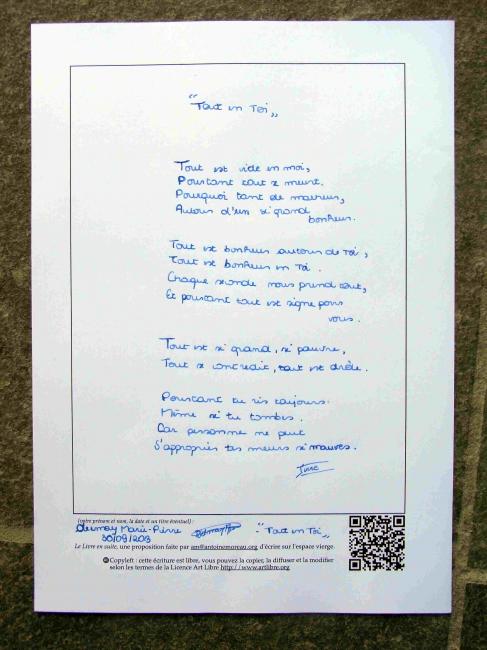 "Tout en Toi"
Tout est vide en moi,
Pourtant tout se meurt.
Pourquoi tant de
Autour d'un si grand
bonheur.
Tout est bonheur autour de Toi,
Tout est bonheur en Toi.
Chaque seconde nous prend tout,
Et pourtant tout est signe pour
vous.
Tout est si grand, si pauvre,
Tout se contredit, tout est drôle.
Pourtant tu ris toujours.
Même si tu tombes.
Car personne ne peut
S'approprier tes si mauves.
(votre prénom et nom, la date et un titre éventuel) :
Marie-Pierre "Tout en Toi"
30/09/2013
Le Livre en suite, une proposition faite par am@antoinemoreau.org d'écrire sur l'espace vierge.
Copyleft : cette écriture est libre, vous pouvez la copier, la diffuser et la modifier
selon les termes de la Licence Art Libre http://www.artlibre.org